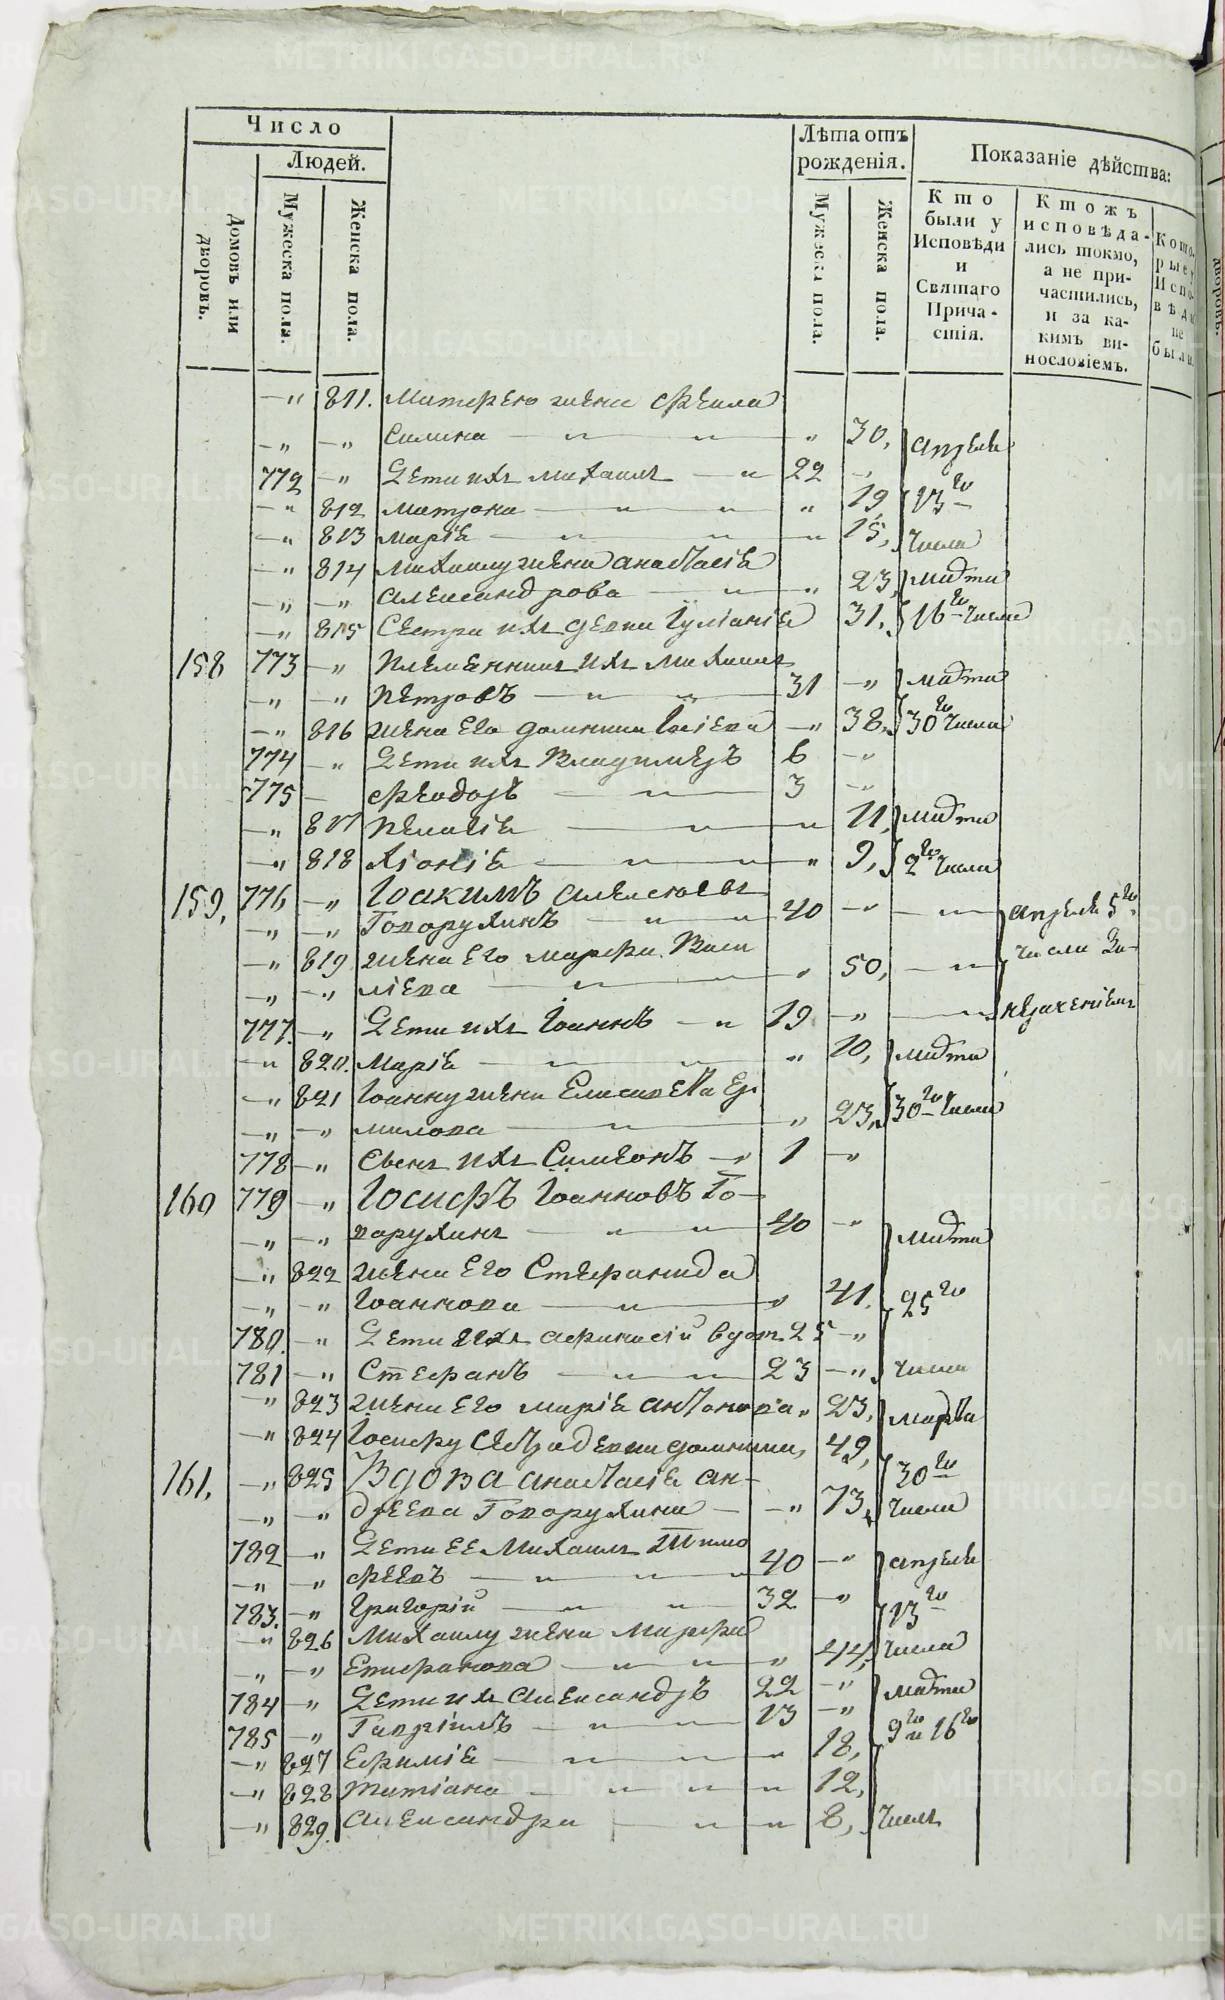 Число
Людей.
Домовъ или дворовъ.
Мужеска пола.
Женска пола.
Лѣта отъ рожденія.
Мужеска пола.
Женска пола.
Показаніе дѣйства:
Кто были у Исповѣди и Святаго Причастія.
Ктожъ исповѣдались токмо, а не причастились, и за какимъ винословіемъ.
Которые у Исповѣди не были.
—„ 811. Матѳею жена Ѳекла
—„ —„ Силина — „ — „ „ 30, апреля
772 —„ Дети ихъ михаилъ — „ 22 —„
—„ 812 матрона — „ — „ „ 19, 13го
—„ 813 марія — „ — „ — „ 15, числа
—„ 814 михаилу жена анастасія
—„ —„ александрова — „ „ 23, марта
—„ 815 Сестра ихъ девка Іуліанія 31, 16го числа
158 773 —„ племянникъ ихъ михаилъ
—„ —„ петровъ — „ — „ 31 —„ марта
—„ 816 жена его домника —„ 38, 30го числа
774 —„ Дети ихъ Владимеръ 6 —„
775 — Ѳеодоръ — „ — 3 —„
—„ 817 пелагія — „ — „ 11, марта
—„ 818 Хіонія — „ — „ „ 9, 2го числа
159, 776 —„ Іоакимъ алексѣевъ
—„ —„ Говорухинъ — „ — „ 40 —„ — „ — апреля 5го
—„ 819 жена его марфа Васи числа за
—„ —„ лiева — „ — „ 50, — „
777. —„ Дети ихъ Іоаннъ — „ 19 —„ — „ нераченіемъ
—„ 820. Марія — „ — „ 10, марта
—„ 821 Іоанну жена Елисавета Ер
—„ —„ милова — „ — „ 23, 30го числа
778 —„ Сынъ ихъ Симеонъ —„ 1 —„
160 779 —„ Іосифъ Іоанновъ Го-
—„ —„ ворухинъ — „ — „ 40 —„ марта
—„ 822 жена его Стефанида
—„ —„ Іоаннова — „ — „ 41. 25го
780. —„ Дети ихъ афанасій вдов. 25 —„
781 —„ Стефанъ — „ — „ 23 —„ числа
„ 823 жена его марія антонова „ 23, марта
„ 824 Іосифу сестра девка домника, 49, 30го
161. —„ 825 Вдова анастасія ан-
—„ —„ дреева Говорухина — —„ 73, числа
782 —„ Дети ее Михаилъ Тимо
—„ —„ ѳеевъ — „ — „ 40 —„ апреля
783. —„ Григорій — „ — „ 32 —„ 13го
—„ 826 Михаилу жена Марфа
—„ —„ Епифанова — „ — „ „ 44, числа
784 —„ Дети ихъ Александръ 22 —„ марта
785 —„ Гавріилъ — „ — „ 13 —„ 9го и 16го
—„ 827 Ефимія — „ — „ „ 18,
—„ 828 Татіана — „ — „ „ 12,
—„ 829. Александра — „ „ 8, числъ
METRIKI.GASO-URAL.RU